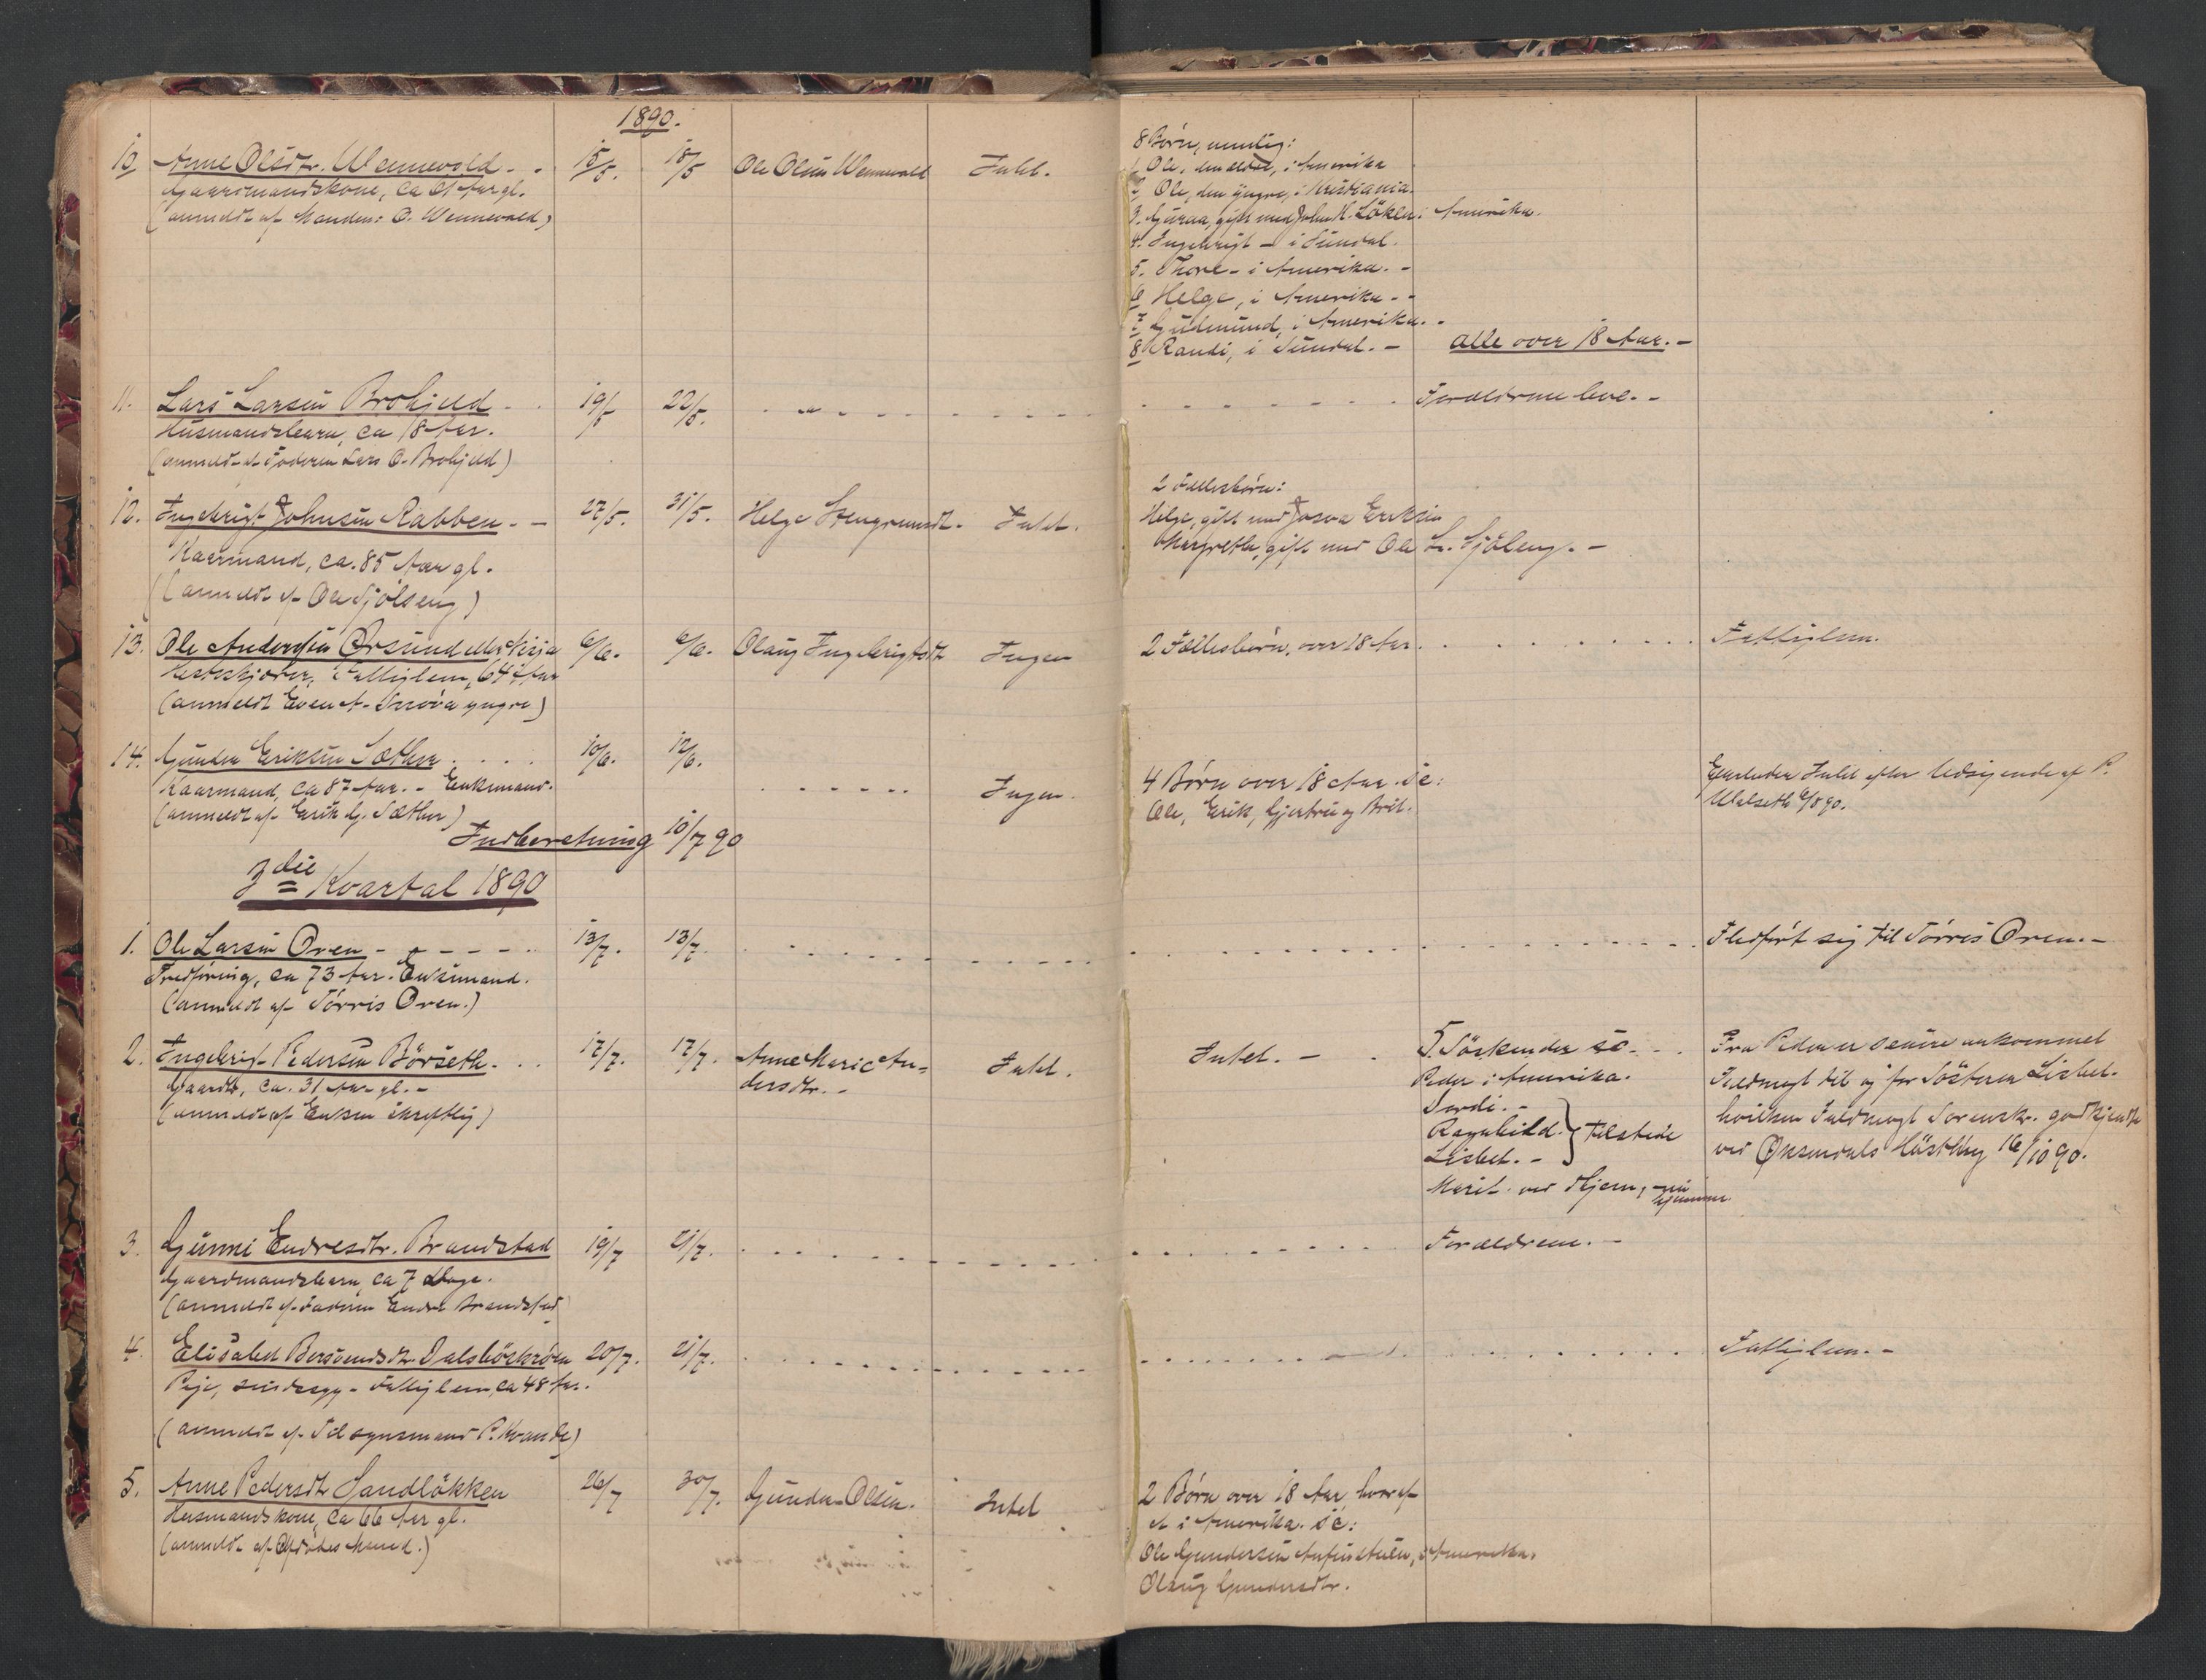 1890.
10 Anne Olsdtr. Wennevold - - 15/5. 18/5 Ole Olsen Wennevold Intet.
Gaardmandskone, ca 61 Aar gl.
(anmeldt af Manden: O. Wennevold)
8 Børn, nemlig:
1 Ole, den ældre, i Amerika
2 Ole, den yngre, i Kristiania.
3. Guraa, gift med John H. Löken i Amerika.
4. Ingebrigt - i Sundal.
5. Thore - i Amerika. -
6 Helge, i Amerika - -
7 Gudmund, i Amerika. -
8 Randi, i Sundal. - alle over 18 Aar. -
11. Lars Larsen Brohjeld - . 19/5 22/5. Forældrene leve. -
Husmandsbarn, ca 18 Aar.
(anmeldt af Faderen Lars O. Brohjeld)
12. Ingebrigt Johnsen Rabben - - 27/5. 31/5. Helge Stengrimsdtr. Intet.
Kaarmand, ca. 85 Aar gl.
(anmeldt af Ole Sjölseng)
2 Fællesbörn:
Helge, gift med Josva Eriksen
Margrethe, gift med Ole L. Sjöleng. -
13. Ole Andersen Orsund 6/6. 6/6. Olaug Ingebrigtsdtr Ingen 2 Fællesbörn, over 18 Aar. Fattiglem.
Fattiglem, 64 Aar
(anmeldt Even A. yngre)
14. Gunder Eriksen Sæther . . . . 10/6. 12/6. Ingen.
Kaarmand, ca 87 Aar. - Enkemand.
(anmeldt af Erik G. Sæther)
4 Børn over 18 Aar. sc:
Ole, Erik, Gjertru og Brit.
Efterlader Intet efter Udsigende af P.
6/8 90.
Indberetning 10/7 90
3die Kvartal 1890
1. Ole Larsen Oren - - - - - 13/7. 13/7. Fledført sig til Törris Oren. -
Fledføring, ca 73 Aar. Enkemand.
(anmeldt af Törris Oren.)
2. Ingebrigt Pedersen Börseth. . . 17/7. 17/7. Anne Marie An-
dersdtr. - Intet. Intet. -
Gaardbr, ca. 31 Aar gl. -
(anmeldt af Enken skriftlig)
5. Söskende sc. . .
Peder i Amerika.
Sordi. -
Ragnhild. } tilstede
Lisbet. -
Marit. ved Hjem, nu
hjemme.
Fra Peder er senere ankommet
Fuldmagt til og for Söstern Lisbet.
hvilken Fuldmagt Sorenskr. godkjendte
ved Øksendals Höstthing 16/10 90.
3. Gunni Endresdtr. Brandstad 19/7 21/7. Forældrene. -
Gaardmandsbarn, ca 7 Dage.
(anmeldt af Faderen Endre Brandstad)
4. Elisabet Bersvendsdtr. Dalsböskröen 20/7. 21/7. Fattiglem. -
Pige, sindssyg - Fattiglem, ca 48 Aar.
(anmeldt af Tilsynsmand P. Kvande)
5. Anne Pedersdtr Sandlökken 26/7 30/7. Gunder Olsen. Intet
Husmandskone, ca 66 Aar gl.
(anmeldt af Afdödes Mand.)
2 Börn over 18 Aar, hvoraf
et i Amerika. sc:
Ole Gundersen i Amerika.
Olaug Gundersdtr.